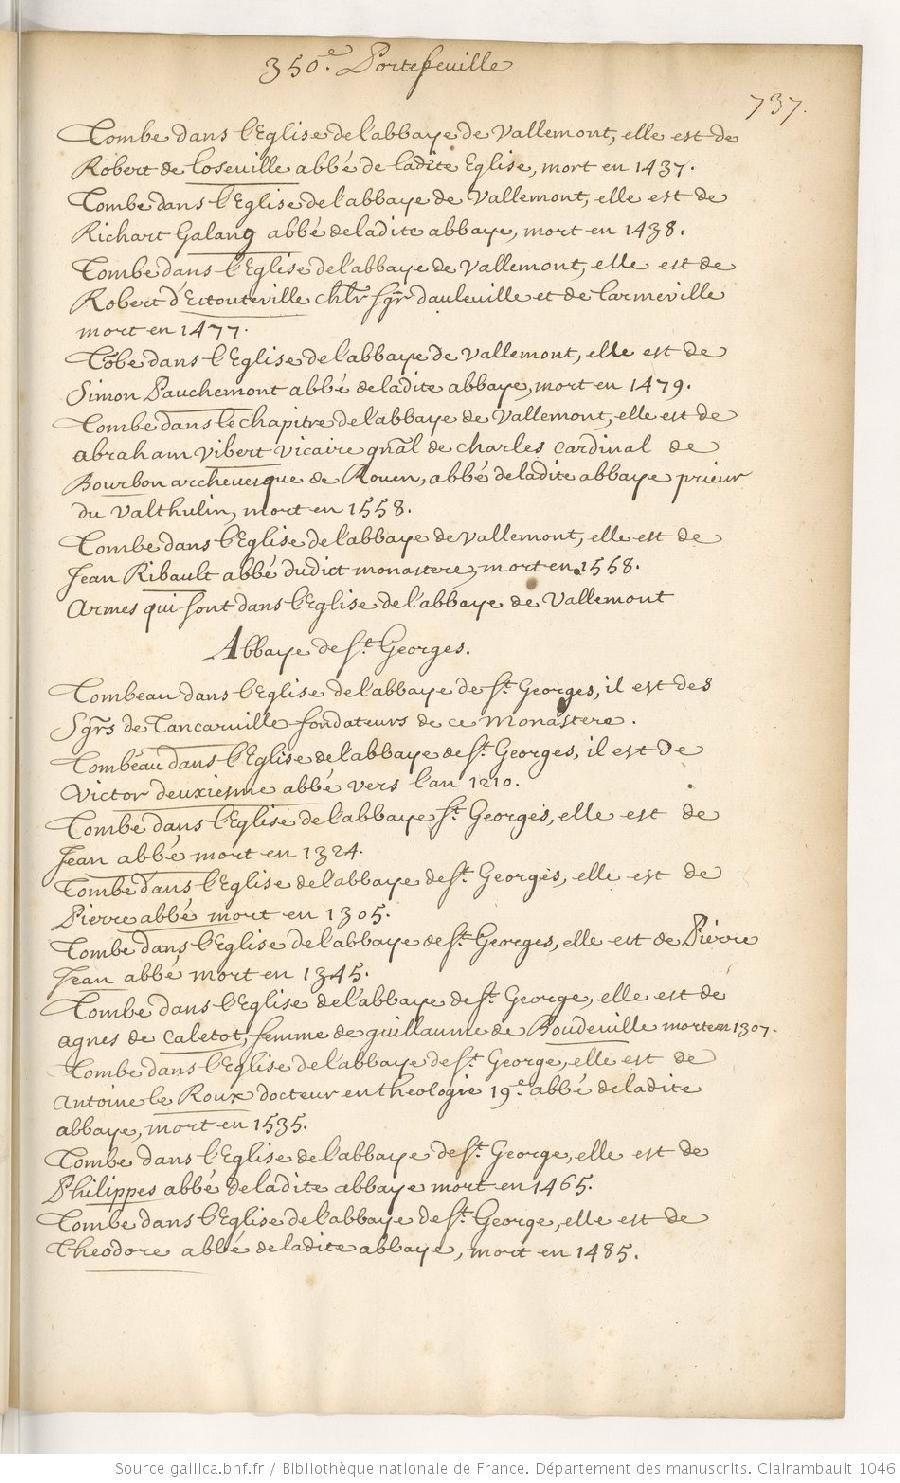 350.e Portefeuille
737.
Tombe dans l'Eglise de l'abbaye de Vallemont, elle est de
Robert de Loseuille abbé de ladite Eglise, mort en 1437.
Tombe dans l'Eglise de l'abbaye de Vallemont, elle est de
Richart Galang abbé de ladite abbaye, mort en 1438.
Tombe dans l'Eglise de l'abbaye de Vallemont, elle est de
Robert d'Ectouteville chlr sgr dauleuille et de Carmeville
mort en 1477.
Tōbe dans l'Eglise de l'abbaye de Vallemont, elle est de
Simon Pauchemont abbé de ladite abbaye, mort en 1479.
Tombe dans le chapitre de l'abbaye de Vallemont, elle est de
abraham vibert vicaire gnāl de charles cardinal de
Bourbon archeuesque de Rouen, abbé de ladite abbaye prieur
du Valthulin, mort en 1558.
Tombe dans l'Eglise de l'abbaye de Vallemont, elle est de
Jean Ribault abbé dudict monastere, mort en 1558.
Armes qui sont dans l'Eglise de l'abbaye de Vallemont
Abbaye de St. Georges.
Tombeau dans l'Eglise de l'abbaye de St. Georges, il est des
Sgrs de Tancarville fondateurs de ce Monastere.
Tombeau dans l'Eglise de l'abbaye de St. Georges, il est de
Victor deuxiesme abbé vers l'an 1210.
Tombe dans l'Eglise de l'abbaye St. Georges, elle est de
Jean abbé mort en 1324.
Tombe dans l'Eglise de l'abbaye de St. Georges, elle est de
Pierre abbé mort en 1305.
Tombe dans l'Eglise de l'abbaye de St. Georges, elle est de Pierre
Jean abbé mort en 1345.
Tombe dans l'Eglise de l'abbaye de St. George, elle est de
agnes de Caletot, femme de guillaume de Boudeuille morte en 1307.
Tombe dans l'Eglise de l'abbaye de St. George, elle est de
Antoine le Roux docteur en theologie 19.e abbé de ladite
abbaye, mort en 1535.
Tombe dans l'Eglise de l'abbaye de St. George, elle est de
Philippes abbé de ladite abbaye mort en 1465.
Tombe dans l'Eglise de l'abbaye de St. George, elle est de
Theodore abbé de ladite abbaye, mort en 1485.
Source gallica.bnf.fr / Bibliothèque nationale de France. Département des manuscrits. Clairambault 1046